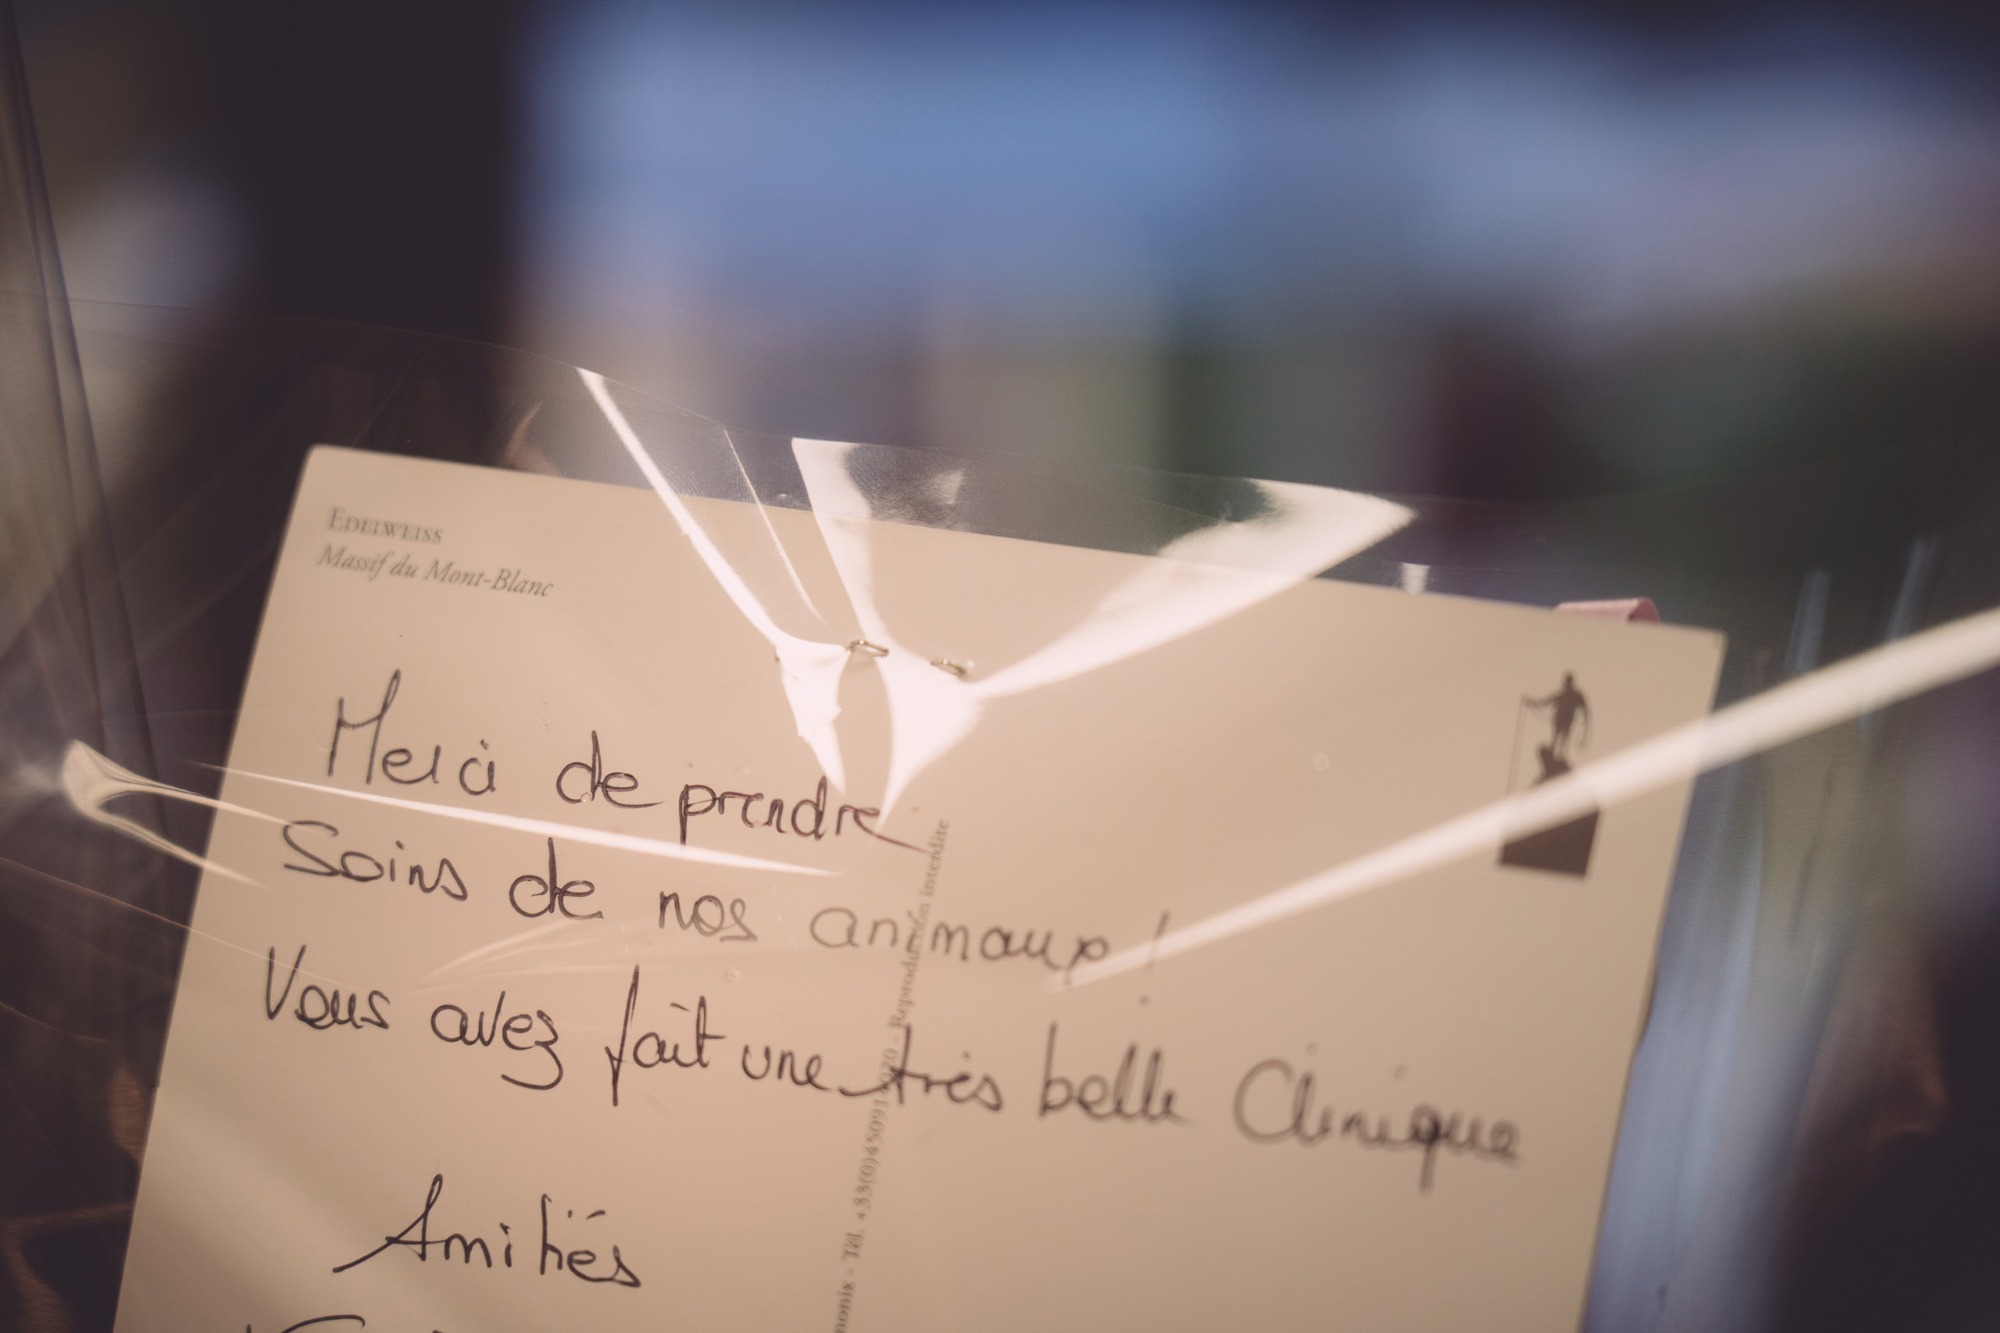 EDELWEISS
Massif du Mont-Blanc
Merci de prendre
Soins de nos animaux !
Vous avez fait une très belle Clinique
Amitiés
monix - Tél. +33(0)450915020 - Reproduction interdite